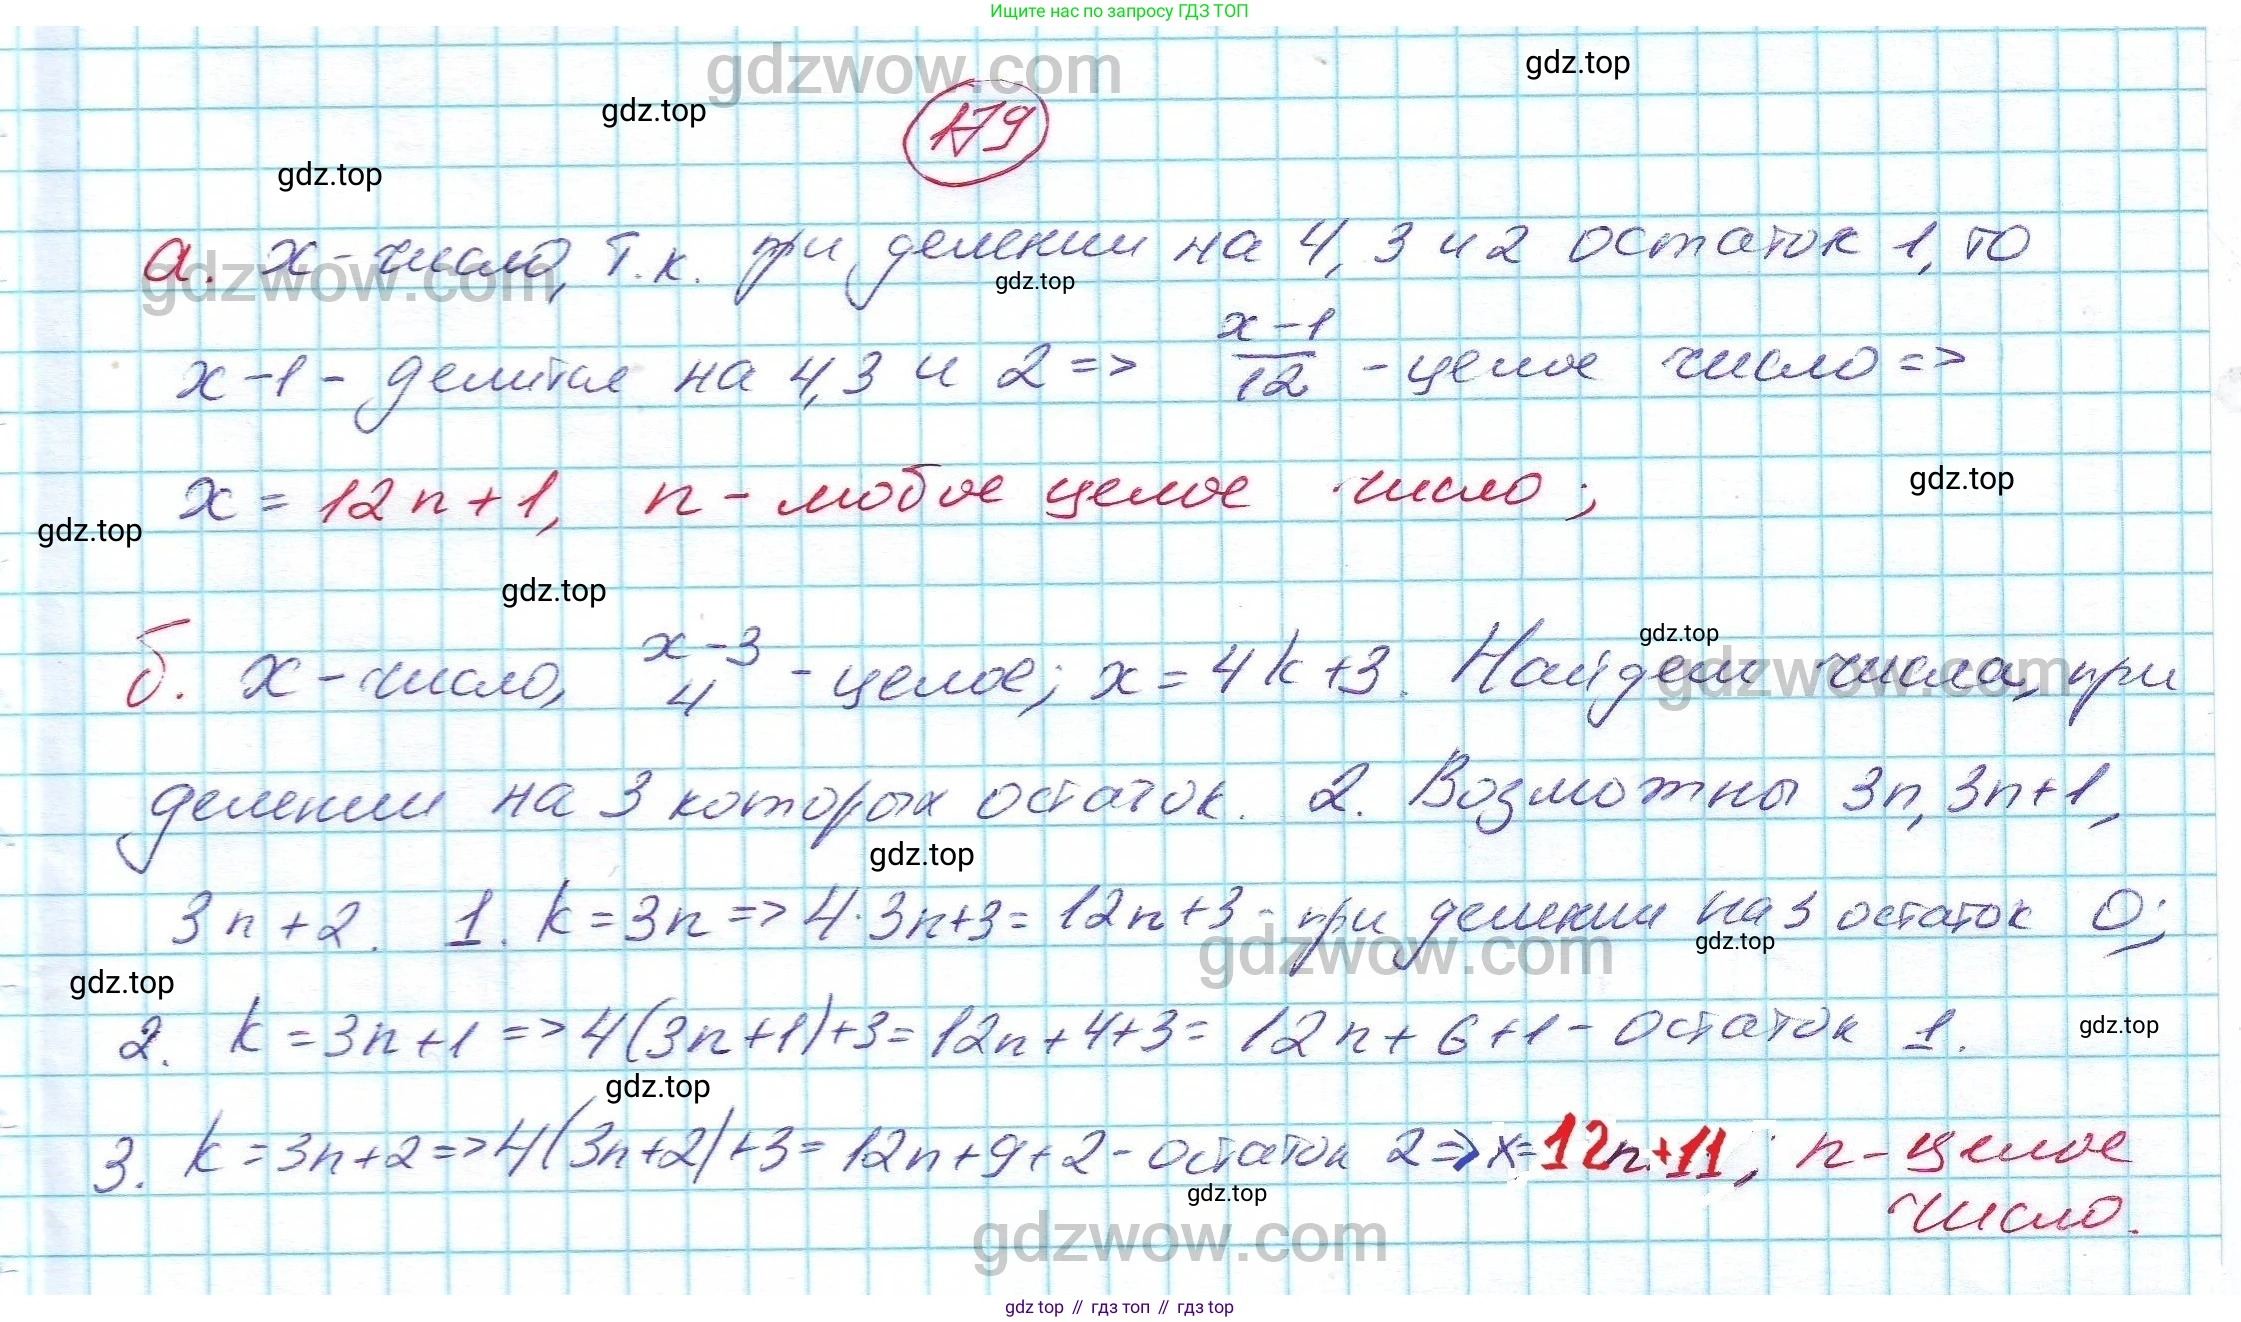 Ищите нас по запросу ГДЗ ТОП
gdzwow.com
gdz.top
gdz.top
179
gdz.top
а. x - число, т.к. при делении на 4, 3 и 2 остаток 1, то
gdzwow.com
gdz.top
x-1 - делится на 4, 3 и 2 => x-1/12 - целое число =>
x = 12n+1, n - любое целое число;
gdz.top
gdz.top
gdz.top
б. x - число, x-3/4 - целое; x = 4k+3. Найдем числа, при
gdz.top
gdzwow.com
делении на 3 которых остаток 2. Возможны 3n, 3n+1,
gdz.top
3n+2. 1. k=3n => 4·3n+3 = 12n+3 - при делении на 3 остаток 0;
gdzwow.com
gdz.top
gdz.top
2. k = 3n+1 => 4(3n+1)+3 = 12n+4+3 = 12n+6+1 - остаток 1.
gdz.top
gdz.top
3. k=3n+2 => 4(3n+2)+3 = 12n+9+2 - остаток 2 => x=12n+11; n - целое
число.
gdz.top
gdzwow.com
gdz top // гдз топ // gdz top